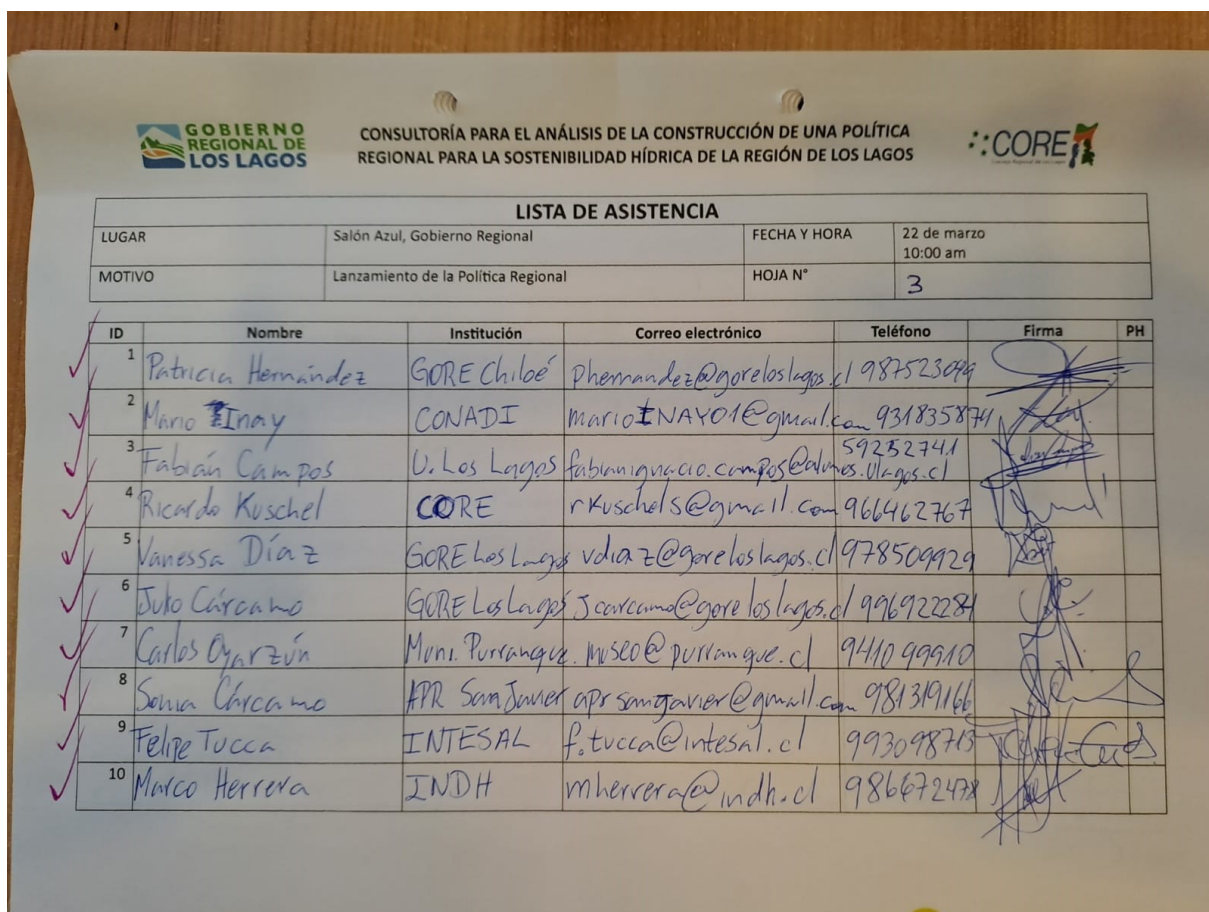 GOBIERNO REGIONAL DE LOS LAGOS
CONSULTORÍA PARA EL ANÁLISIS DE LA CONSTRUCCIÓN DE UNA POLÍTICA
REGIONAL PARA LA SOSTENIBILIDAD HÍDRICA DE LA REGIÓN DE LOS LAGOS
CORE
LISTA DE ASISTENCIA
LUGAR Salón Azul, Gobierno Regional FECHA Y HORA 22 de marzo
10:00 am
MOTIVO Lanzamiento de la Política Regional HOJA N° 3
ID Nombre Institución Correo electrónico Teléfono Firma PH
1 Patricia Hernández GORE Chiloé phernandez@goreloslagos.cl 987523099
2 Mario Inay CONADI marioINAY01@gmail.com 931835874
3 Fabián Campos U. Los Lagos fabianignacio.campos@alumnos.ulagos.cl 59252741
4 Ricardo Kuschel CORE rkuschels@gmail.com 966462767
5 Vanessa Díaz GORE Los Lagos vdiaz@goreloslagos.cl 978509929
6 Julio Cárcamo GORE Los Lagos jcarcamo@goreloslagos.cl 996922284
7 Carlos Oyarzún Muni. Purranque. museo@purranque.cl 941099910
8 Sonia Cárcamo APR San Javier aprsanjavier@gmail.com 981319166
9 Felipe Tucca INTESAL f.tucca@intesal.cl 993098713
10 Marco Herrera INDH mherrera@indh.cl 986672478